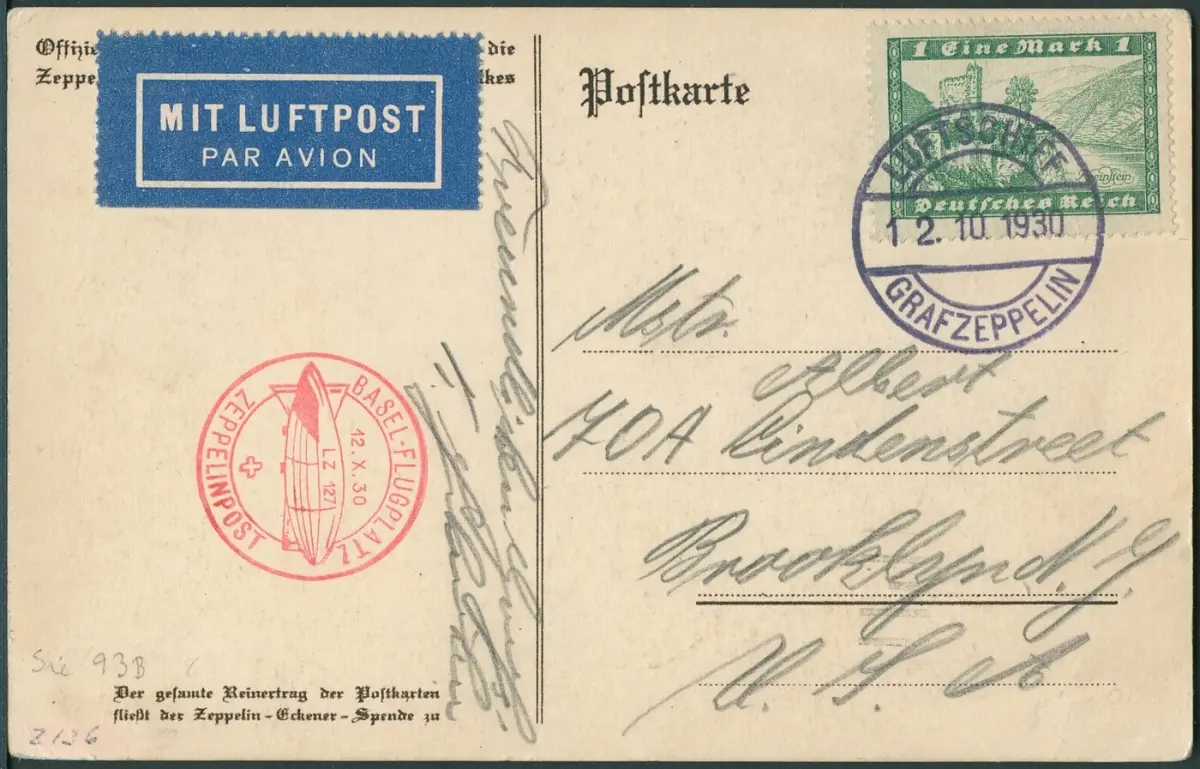 Offizie
die
Zeppe
lkes
MIT LUFTPOST
PAR AVION
Postkarte
1 Eine Mark 1
Rheinstein
Deutsches Reich
LUFTSCHIFF
12.10.1930
GRAF ZEPPELIN
Mstr.
Albert
70A Lindenstreet
Brooklynd. N. Y.
U. S. A
BASEL-FLUGPLATZ
12.X.30
LZ 127
ZEPPELINPOST
Sie 93B
Der gesamte Reinertrag der Postkarten
fließt der Zeppelin-Eckener-Spende zu
2136